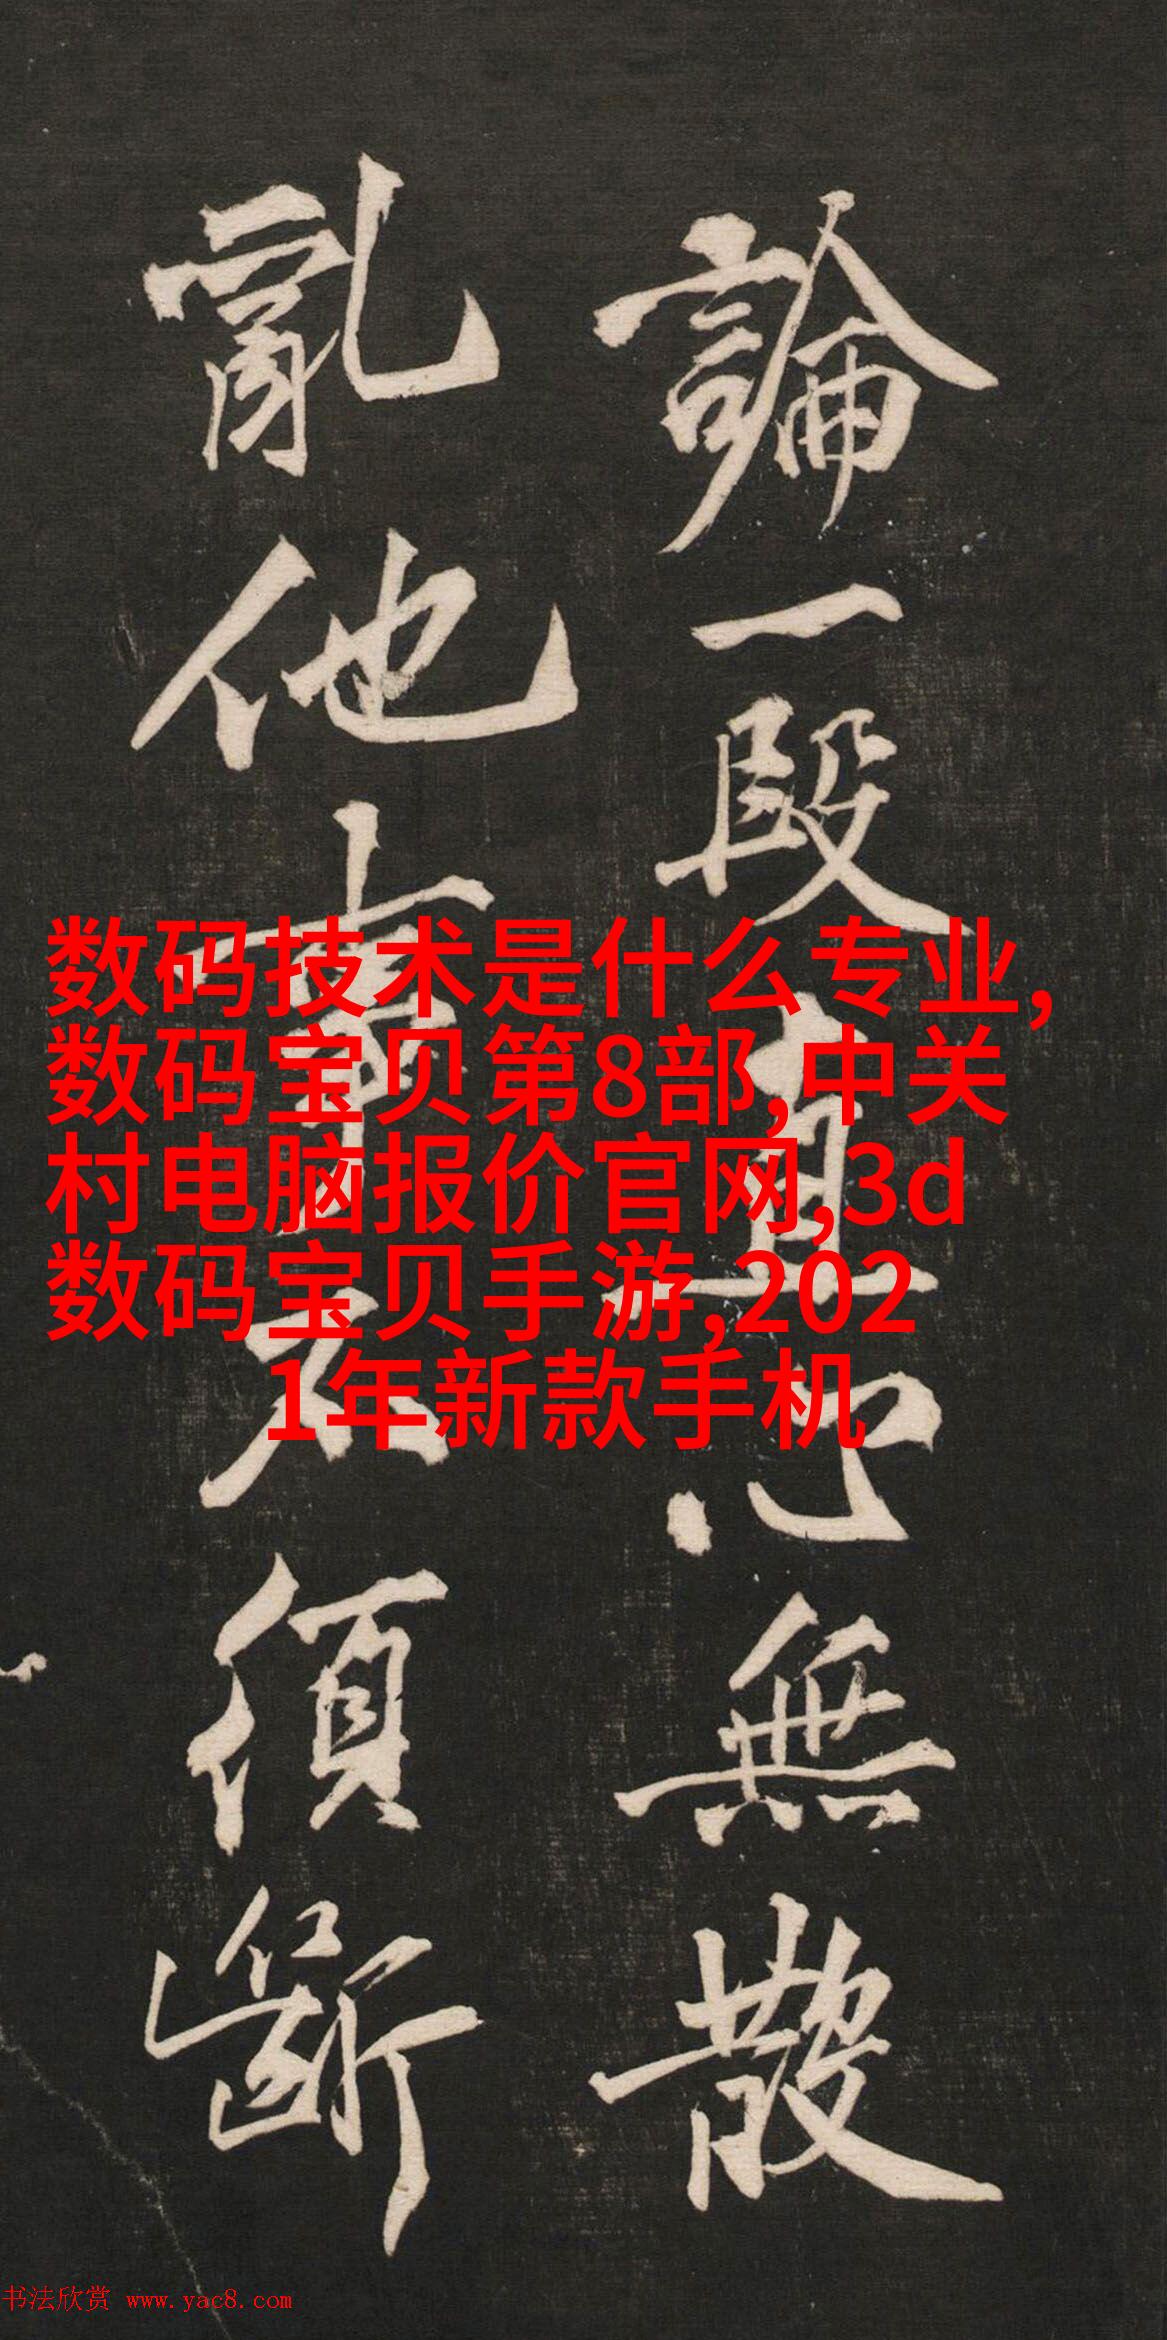 論一段直心無散
亂他事須斷
数码技术是什么专业,
数码宝贝第8部,中关
村电脑报价官网,3d
数码宝贝手游,202
1年新款手机
书法欣赏 www.yac8.com